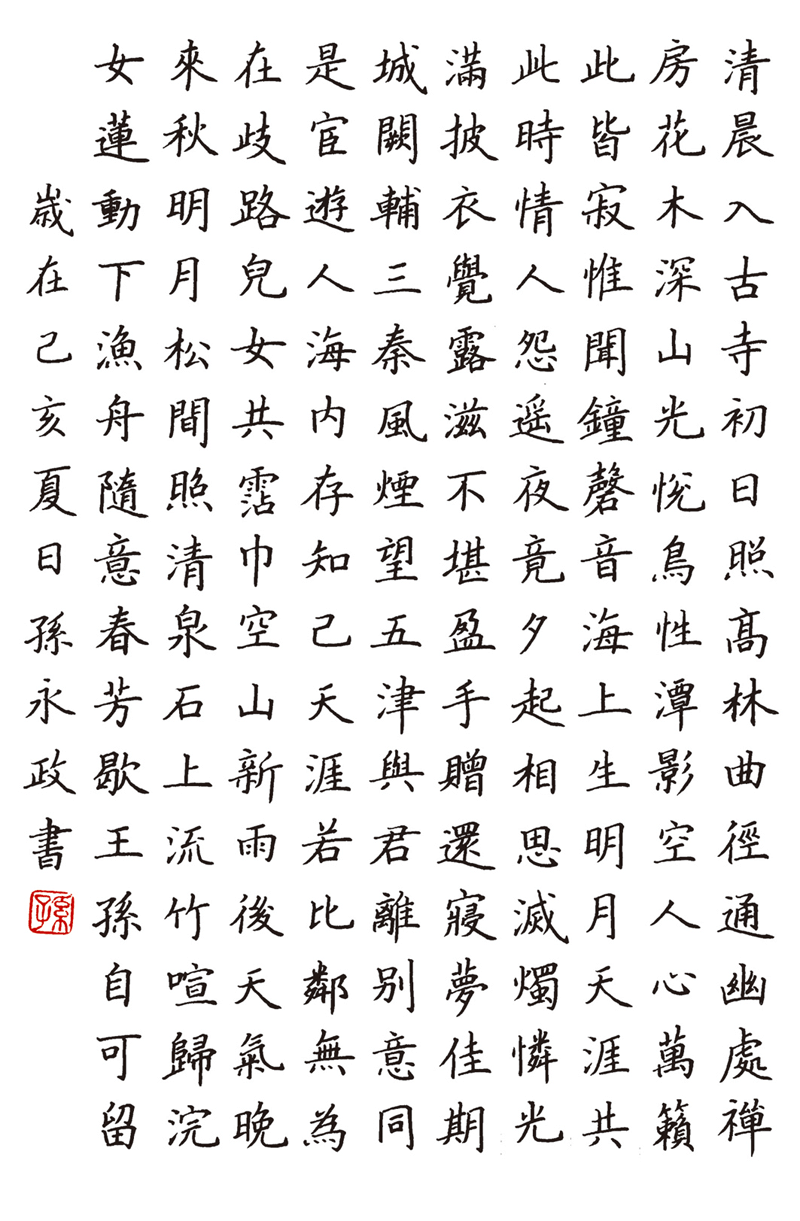 清晨入古寺初日照高林曲徑通幽處禪
房花木深山光悅鳥性潭影空人心萬籟
此皆寂惟聞鐘磬音海上生明月天涯共
此時情人怨遥夜竟夕起相思滅燭憐光
滿披衣覺露滋不堪盈手贈還寢夢佳期
城闕輔三秦風煙望五津與君離别意同
是宦遊人海内存知己天涯若比鄰無為
在歧路兒女共霑巾空山新雨後天氣晚
來秋明月松間照清泉石上流竹喧歸浣
女蓮動下漁舟隨意春芳歇王孫自可留
歲在己亥夏日孫永政書
孫